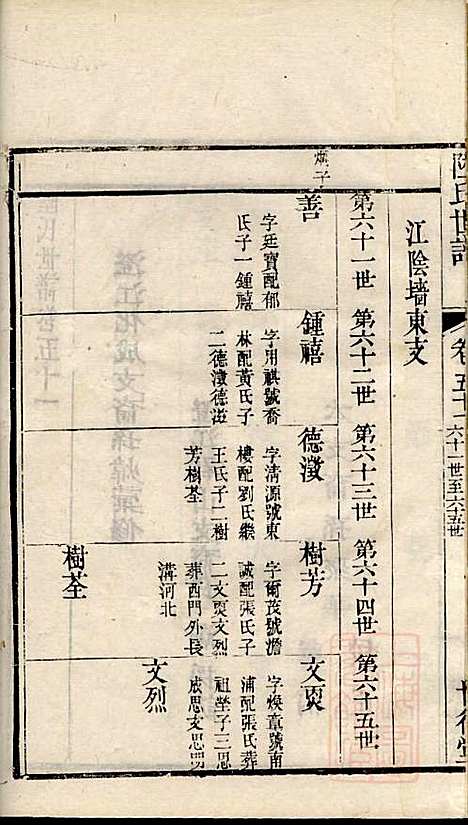 陳氏世譜
卷五十一
六十一世至六十五世
江陰墻東支
第六十一世
第六十二世
第六十三世
第六十四世
第六十五世
善
字廷寶配郁
氏子一鍾禧
鍾禧
字用祺號喬
林配黃氏子
二德澂德滋
德澂
字清源號東
樓配劉氏繼
王氏子二樹
芳樹荃
樹芳
字爾茂號澹
誠配張氏子
二文煚文烈
葬西門外長
溝河北
文煚
字煥章號南
浦配張氏葬
祖塋子三思
成思文思問
樹荃
文烈